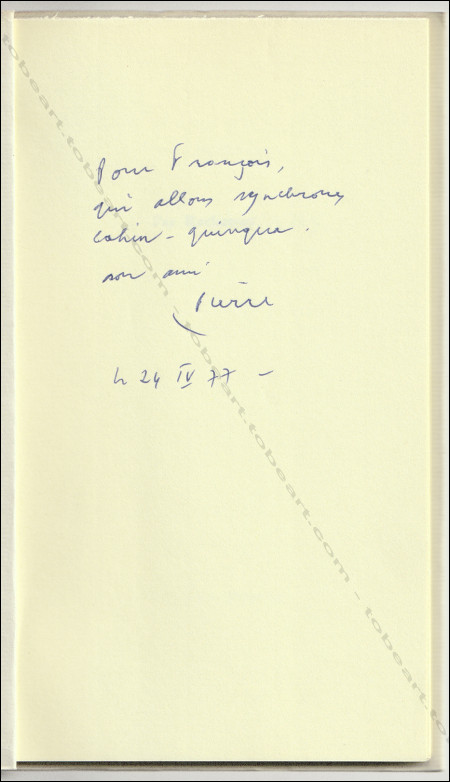 Pour François,
qui allons synchrones
cahin-quinqua.
son ami
Pierre
le 24 IV 77 –
tobeart.com - tobeart.com - tobeart.com - tobeart.com - tobeart.com